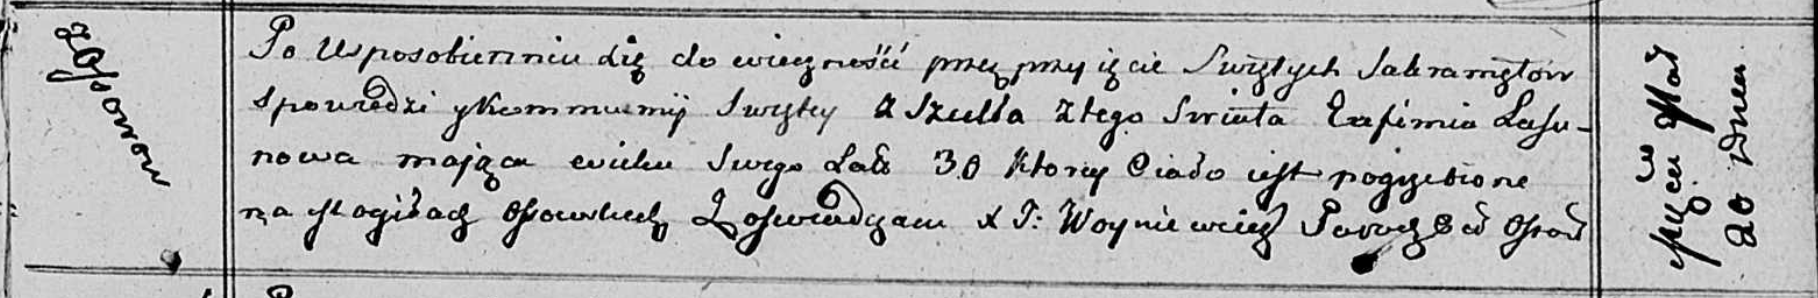 z Osowow
Po Usposobienniu się do wieczności przez przyięcie Swiętych Sakramętow
Spowiedzi y Kommunij Swiętey z Szedła z tego Swiata Eufimia Łasu-
nowa maiąca wieku Swego Lat 30 ktorey Ciało iest pogrzebione
na Mogiłach Osowskich Zaswiadczam X J: Woyniewicz Paroch
w Mcu Maia
20 Dnia